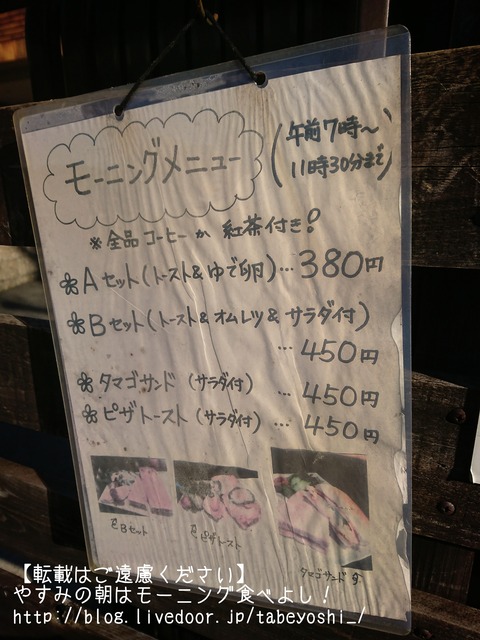 モーニングメニュー
(午前7時〜
11時30分まで)
※全品コーヒーか紅茶付き!
Aセット(トースト&ゆで卵)…380円
Bセット(トースト&オムレツ&サラダ付)
…450円
タマゴサンド(サラダ付)…450円
ピザトースト(サラダ付)…450円
Bセット
ピザトースト
タマゴサンド
【転載はご遠慮ください】
やすみの朝はモーニング食べよし!
http://blog.livedoor.jp/tabeyoshi_/